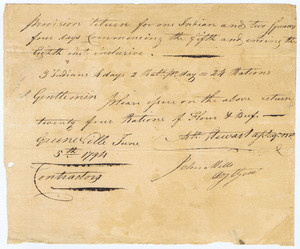 provision return for one Indian and two Squaws
four days commencing the fifth and ending the
Eighth inst inclusive.
3 Indians 4 days 2 Rats. pr day = 24 Rations
Gentlemen please issue on the above return
twenty four Rations of Flour & Beef.
Greenville June
5th 1794
Contractors
John Mills